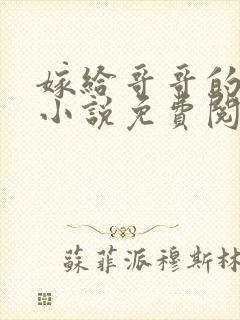 嫁給哥哥的
小說免費閱
蘇菲派穆斯林